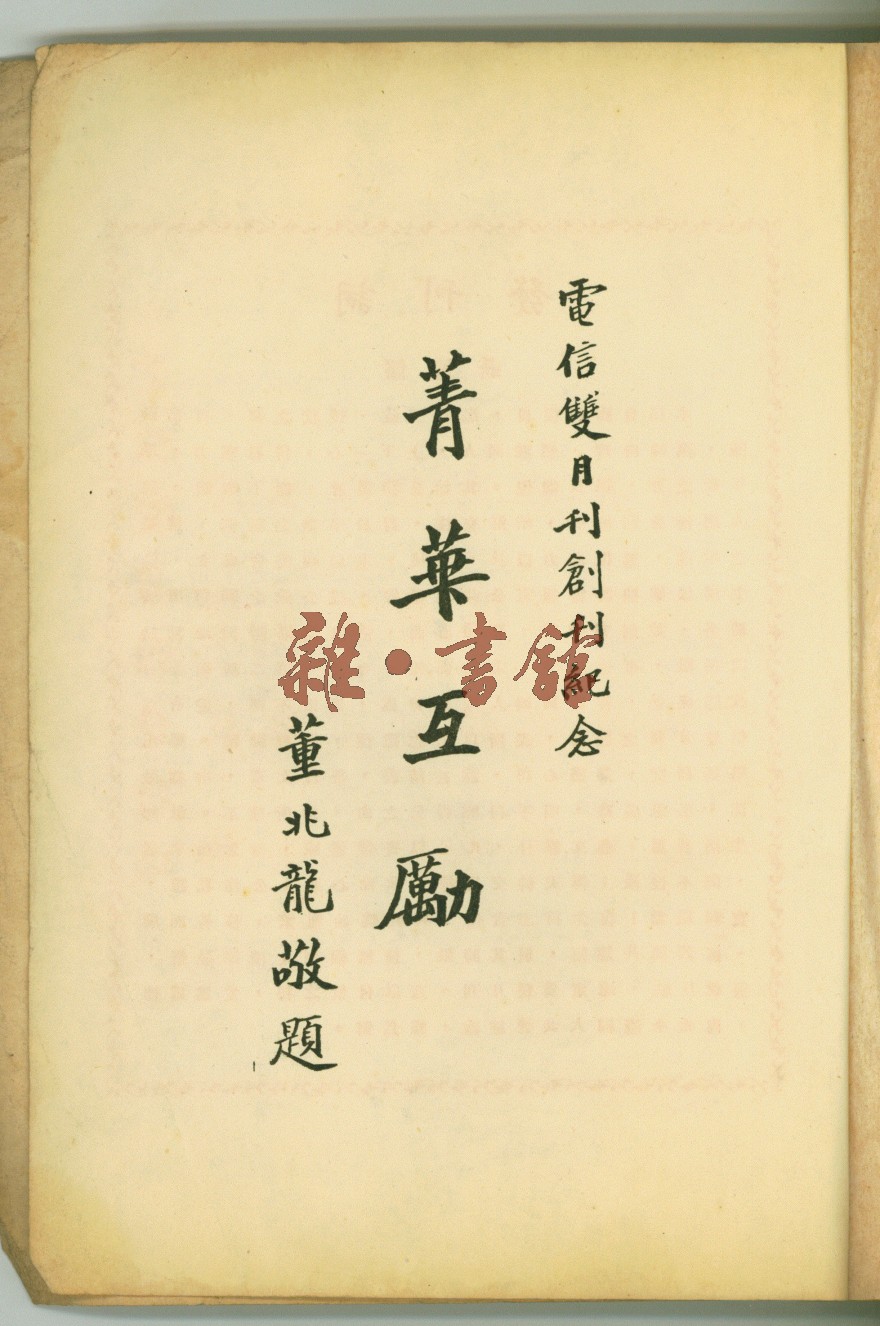 電信雙月刊創刊紀念
菁華互勵
董兆龍敬題
雜·書館